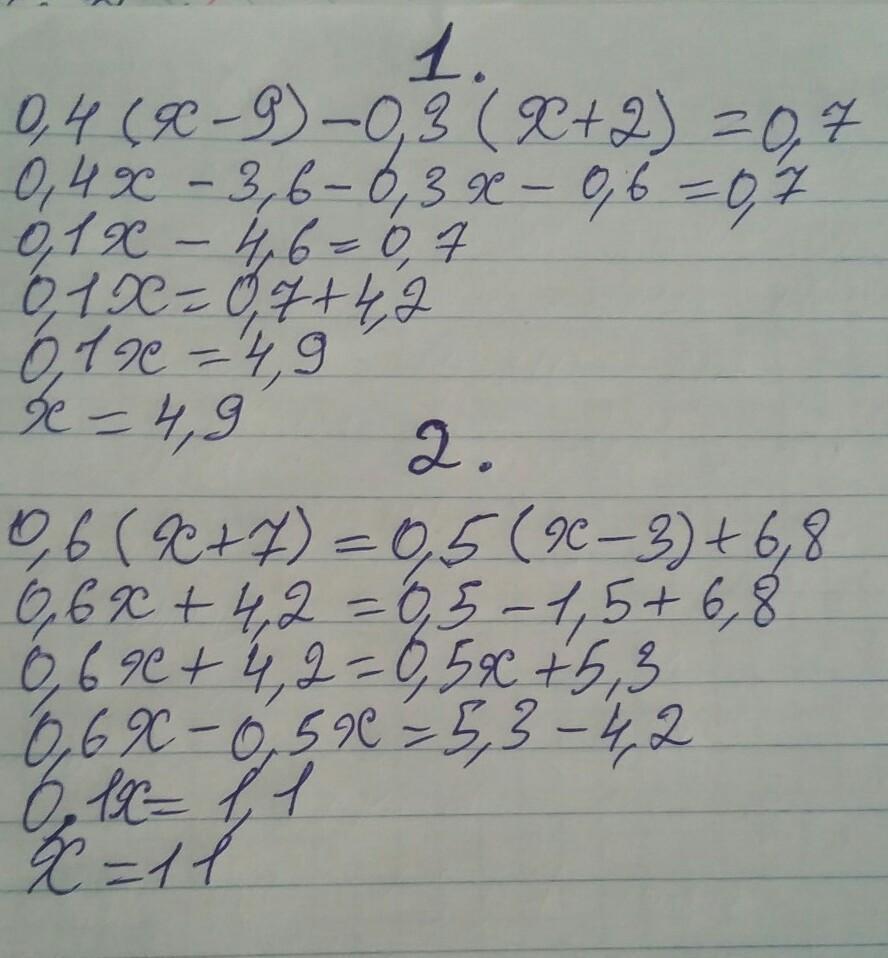 1.
0,4(x-9)-0,3(x+2)=0,7
0,4x-3,6-0,3x-0,6=0,7
0,1x-4,6=0,7
0,1x=0,7+4,2
0,1x=4,9
x=4,9
2.
0,6(x+7)=0,5(x-3)+6,8
0,6x+4,2=0,5-1,5+6,8
0,6x+4,2=0,5x+5,3
0,6x-0,5x=5,3-4,2
0,1x=1,1
x=11